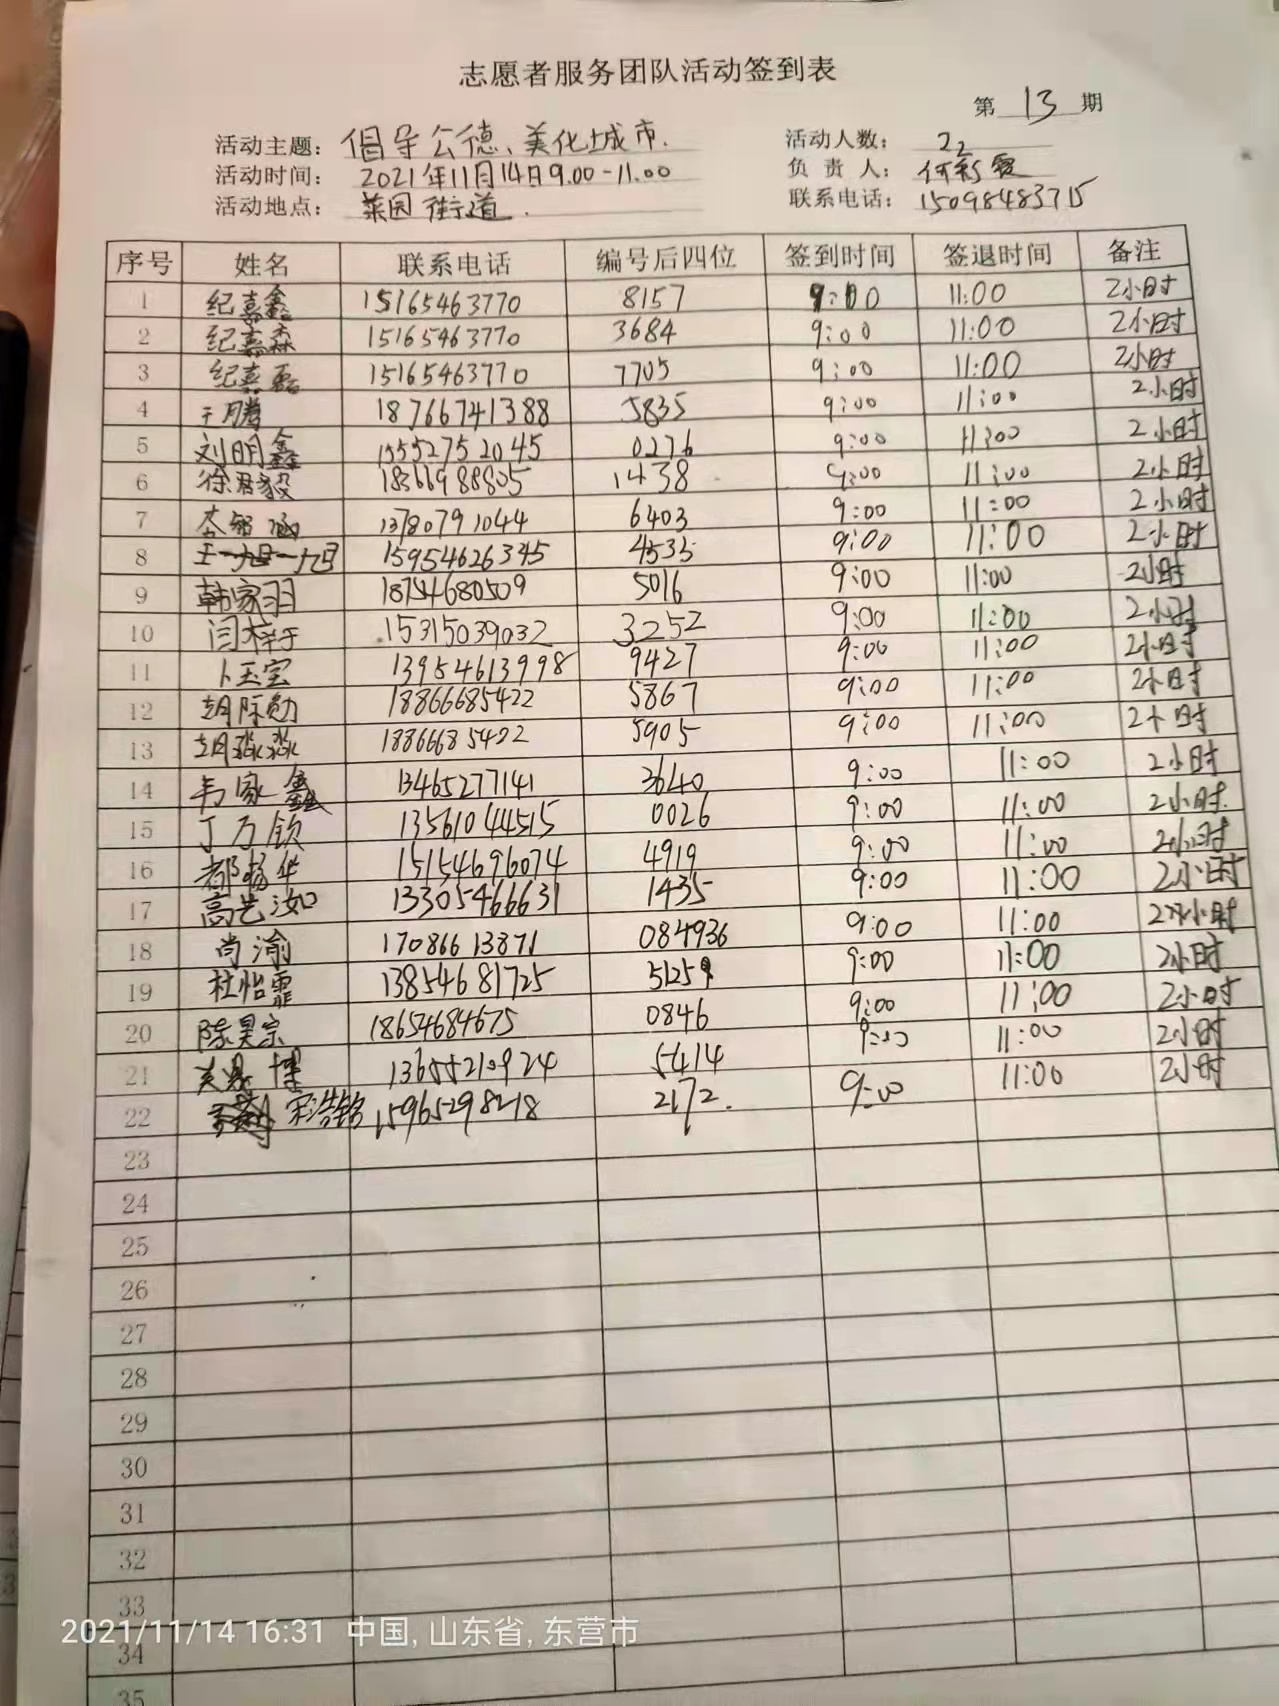 志愿者服务团队活动签到表
第 13 期
活动主题： 倡导公德、美化城市. 活动人数： 22
活动时间： 2021年11月14日9.00-11.00 负 责 人： 何彩霞
活动地点： 菜园街道. 联系电话： 15098483715
序号 姓名 联系电话 编号后四位 签到时间 签退时间 备注
1 纪嘉鑫 15165463770 8157 9:00 11:00 2小时
2 纪嘉森 15165463770 3684 9:00 11:00 2小时
3 纪嘉磊 15165463770 7705 9:00 11:00 2小时
4 王腾 18766741388 5835 9:00 11:00 2小时
5 刘明鑫 15552752045 0276 9:00 11:00 2小时
6 徐君毅 18366988805 1438 9:00 11:00 2小时
7 13780791044 6403 9:00 11:00 2小时
8 15954626345 4535 9:00 11:00 2小时
9 韩家羽 18754680509 5016 9:00 11:00 2小时
10 闫梓于 15315039032 3252 9:00 11:00 2小时
11 卜玉宝 13954613998 9427 9:00 11:00 2小时
12 胡际勋 18866685422 5867 9:00 11:00 2小时
13 胡淼淼 18866685422 5905 9:00 11:00 2小时
14 韦家鑫 13465277141 3640 9:00 11:00 2小时
15 丁万钦 13561044515 0026 9:00 11:00 2小时.
16 都杨华 15154696074 4919 9:00 11:00 2小时
17 高艺汝 13305466631 1435 9:00 11:00 2小时
18 尚渝 17086613871 084936 9:00 11:00 2小时
19 杜怡霏 13854681725 5125 9:00 11:00 2小时
20 陈昊宗 18654684675 0846 9:00 11:00 2小时
21 13655210924 5414 9:00 11:00 2小时
22 宋浩铭 15965298218 2172. 9:00 11:00 2小时
23
24
25
26
27
28
29
30
31
32
33
2021/11/14 16:31 中国, 山东省, 东营市
34
35